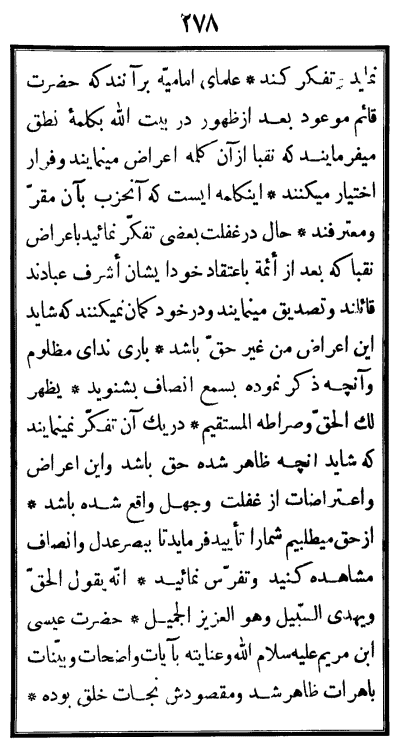 ۲۷۸
نماید و تفکر کند * علمای امامیّه برآنند که حضرت
قائم موعود بعد از ظهور در بیت الله بکلمهٔ نطق
میفرمایند که نقبا از آن کلمه اعراض مینمایند و فرار
اختیار میکنند * اینکلمه ایست که آنحزب بآن مقرّ
و معترفند * حال در غفلت بعضی تفکّر نمائید باعراض
نقبا که بعد از أئمة باعتقاد خود ایشان أشرف عبادند
قائلند و تصدیق مینمایند و در خود گمان نمیکنند که شاید
این اعراض من غیر حقّ باشد * باری ندای مظلوم
و آنچه ذکر نموده بسمع انصاف بشنوید * یظهر
لك الحقّ و صراطه المستقیم * در یك آن تفکّر نمینمایند
که شاید انچه ظاهر شده حق باشد و این اعراض
و اعتراضات از غفلت و جهل واقع شده باشد *
از حق میطلبیم شما را تأیید فرماید تا ببصر عدل و انصاف
مشاهده کنید و تفرّس نمائید * انّه یقول الحقّ
و یهدی السّبیل و هو العزیز الجمیل * حضرت عیسی
ابن مریم علیه سلام الله و عنایته بآیات واضحات و بیّنات
باهرات ظاهر شد و مقصودش نجات خلق بوده *